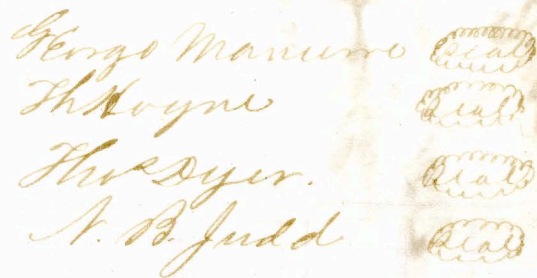 George Manierre Seal
Th Hoyne Seal
Thos Dyer. Seal
N. B. Judd Seal